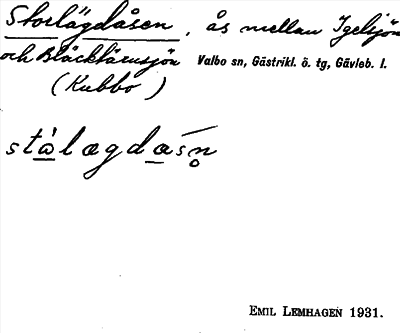 Storlägdåsen, ås mellan Igelsjön
och Bläcktärnsjön Valbo sn, Gästrikl. ö. tg, Gävleb. l.
(Kubbo)
stálægdasn
EMIL LEMHAGEN 1931.